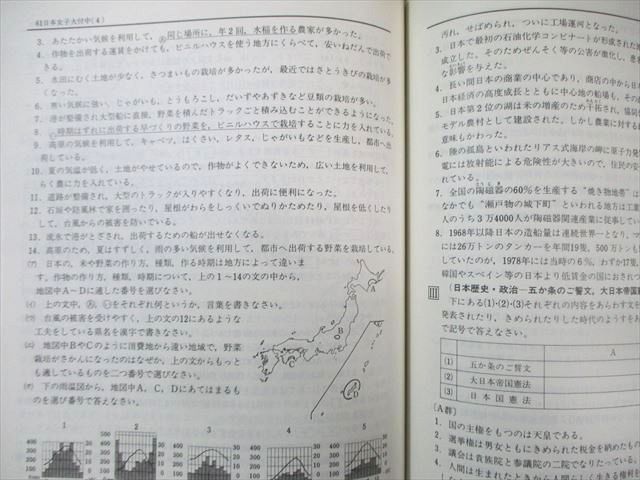 61日本女子大付中(4)
3. あたたかい気候を利用して、㋐同じ場所に、年2回、水稲を作る農家が多かった。
4. 作物を出荷する運賃をかけても、ビニルハウスを使う地方にくらべて、安いねだんで出荷で
きる。
5. 水田にむく土地が少なく、さつまいもの栽培が多かったが、最近ではさとうきびの栽培が多
くなった。
6. 寒い気候に強い、じゃがいも、とうもろこし、だいずやあずきなど豆類の栽培が多い。
7. 港が整備され大型船に直接、野菜を積んだトラックごと積み込むことができるようになった。
8. 時期はずれに出荷する早づくりの野菜を、ビニルハウスで栽培することに力を入れている。
9. 高原の気候を利用して、キャベツ、はくさい、レタス、じゃがいもなどを生産し、都市へ出
荷している。
10. 夏の気温が低く、土地がやせているので、作物がよくできないため、広い土地を利用して、
らく農に力を入れている。
11. 道路が整備され、大型のトラックが入りやすくなり、出荷に便利になった。
12. 石垣や防風林で家を囲ったり、屋根がわらをしっくいでぬりかためたり、屋根を低くしたり
して、台風からの被害を防いでいる。
13. 流氷で港がとざされ、出荷するための船が出せなくなる。
14. 高原のため、夏はすずしく、雨の多い気候を利用して、都市へ出荷する野菜を栽培している。
(ア) 日本の、米や野菜の作り方、種類、作る時期は地方によって違いま
す。作物の作り方、種類、時期について、上の1～14の文の中から、
地図中A～Dに適した番号を選びなさい。
(イ) 上の文中、㋐、㋑をそれぞれ何というか、言葉を書きなさい。
(ウ) 台風の被害を受けやすく、上の文の12にあるような
工夫をしている県名を漢字で書きなさい。
(エ) 地図中BやCのように消費地から遠い地域で、野菜
栽培がさかんになったのはなぜか、上の文からもっと
も適しているものを二つ番号で選びなさい。
(オ) 下の雨温図から、地図中A、C、Dにあてはまるも
のを選び番号で答えなさい。
A
B
C
D
1
2
3
4
5
400
300
200
100
汚れ、せばめられ、ついに工場運河となった。
3. 日本で最初の石油化学コンビナートが形成された
成立した。そのためぜんそく等の公害が進み、患者
な影響を与えた。
4. 長い間日本の商業の中心であり、商店の中から日本
日本経済の高度成長とともに中心地の船場も、その
5. 日本第2位の湖は米の増産のため干拓され、協同
モデル農村として建設された。しかし農業に対する
意味もかわった。
6. 陸の孤島といわれたリアス式海岸の岬に原子力発
電には放射能による危険性が大きいので、住民の安
れている。
7. 全国の陶磁器の60%を生産する“焼き物地帯”
なかでも“瀬戸物の城下町”といわれる地域は工業
人のうち3万4000人が陶磁器関連産業に従事してい
8. 1968年以降日本の造船量は連続世界一となり、マ
には26万トンのタンカーを年間19隻、500万トンも
していたのが、1978年には当時の6%、わずか17隻
韓国やスペイン等の日本より低賃金の国におされて
Ⅲ (日本歴史・政治—五か条のご誓文、大日本帝国憲
下にある(1)・(2)・(3)それぞれの内容をあらわす文を
発表されたり、きめられたりした時代のようすをあ
で記号で答えなさい。
A
(1) 五か条のご誓文
(2) 大日本帝国憲法
(3) 日本国憲法
〔A群〕
1. 国の主権をもつのは天皇である。
2. 選挙権は男女ともにきめられた税金を納めたもの
3. 議会は貴族院と参議院の二院でなりたっている。
4. 人間は生まれたときから人間らしく生きる権利